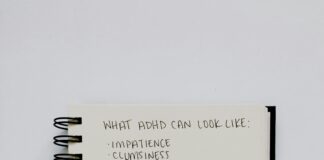 WHAT ADHD CAN LOOK LIKE:
·IMPATIENCE
·CLUMSINESS